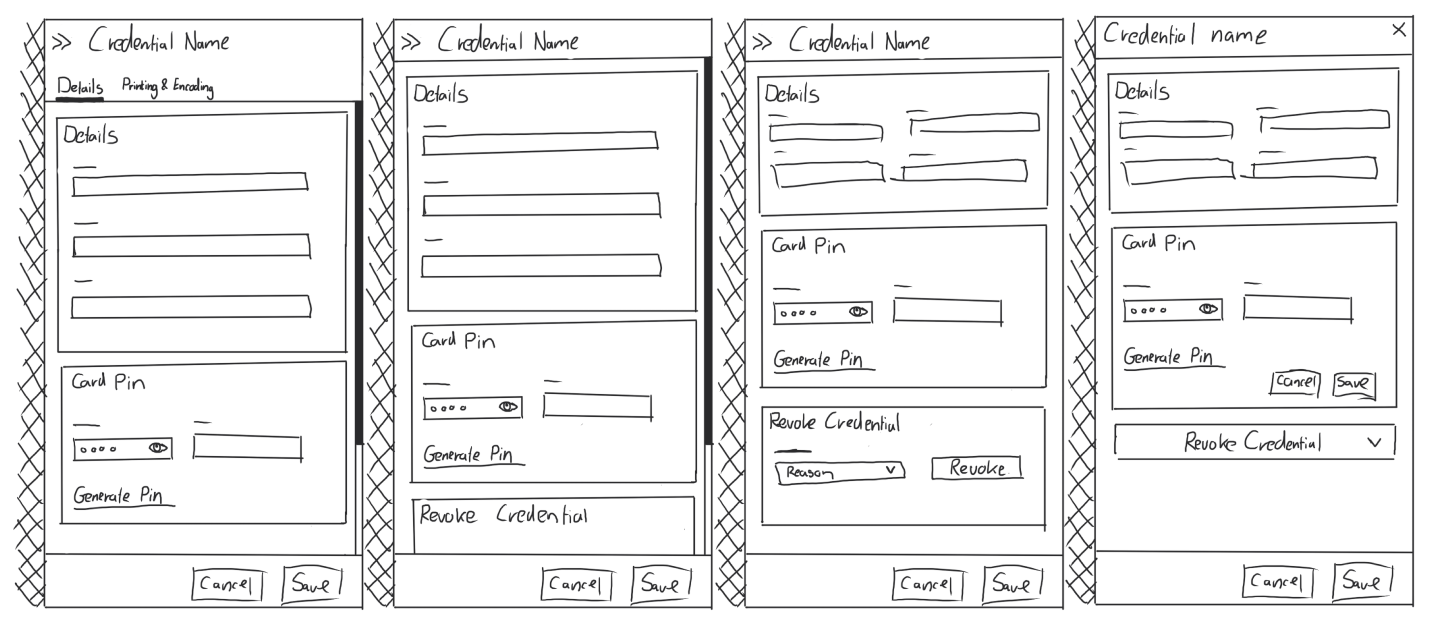 >> Credential Name
Details Printing & Encoding
Details
Card Pin
Generate Pin
Cancel Save
>> Credential Name
Details
Card Pin
Generate Pin
Revoke Credential
Cancel Save
>> Credential Name
Details
Card Pin
Generate Pin
Revoke Credential
Reason Revoke
Cancel Save
Credential name ×
Details
Card Pin
Generate Pin
Cancel Save
Revoke Credential
Cancel Save